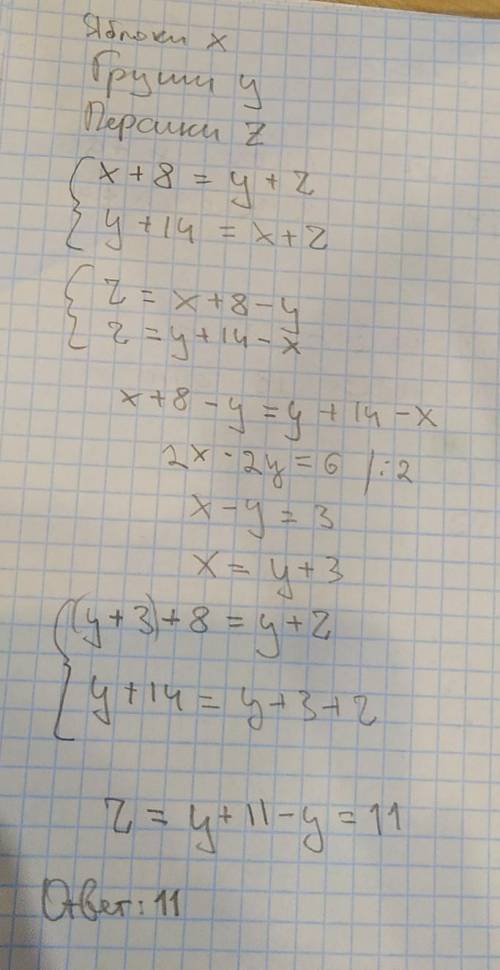 Яблоки x
Груши y
Персики z
x + 8 = y + z
y + 14 = x + z
z = x + 8 - y
z = y + 14 - x
x + 8 - y = y + 14 - x
2x - 2y = 6 /:2
x - y = 3
x = y + 3
(y + 3) + 8 = y + z
y + 14 = y + 3 + z
z = y + 11 - y = 11
Ответ: 11